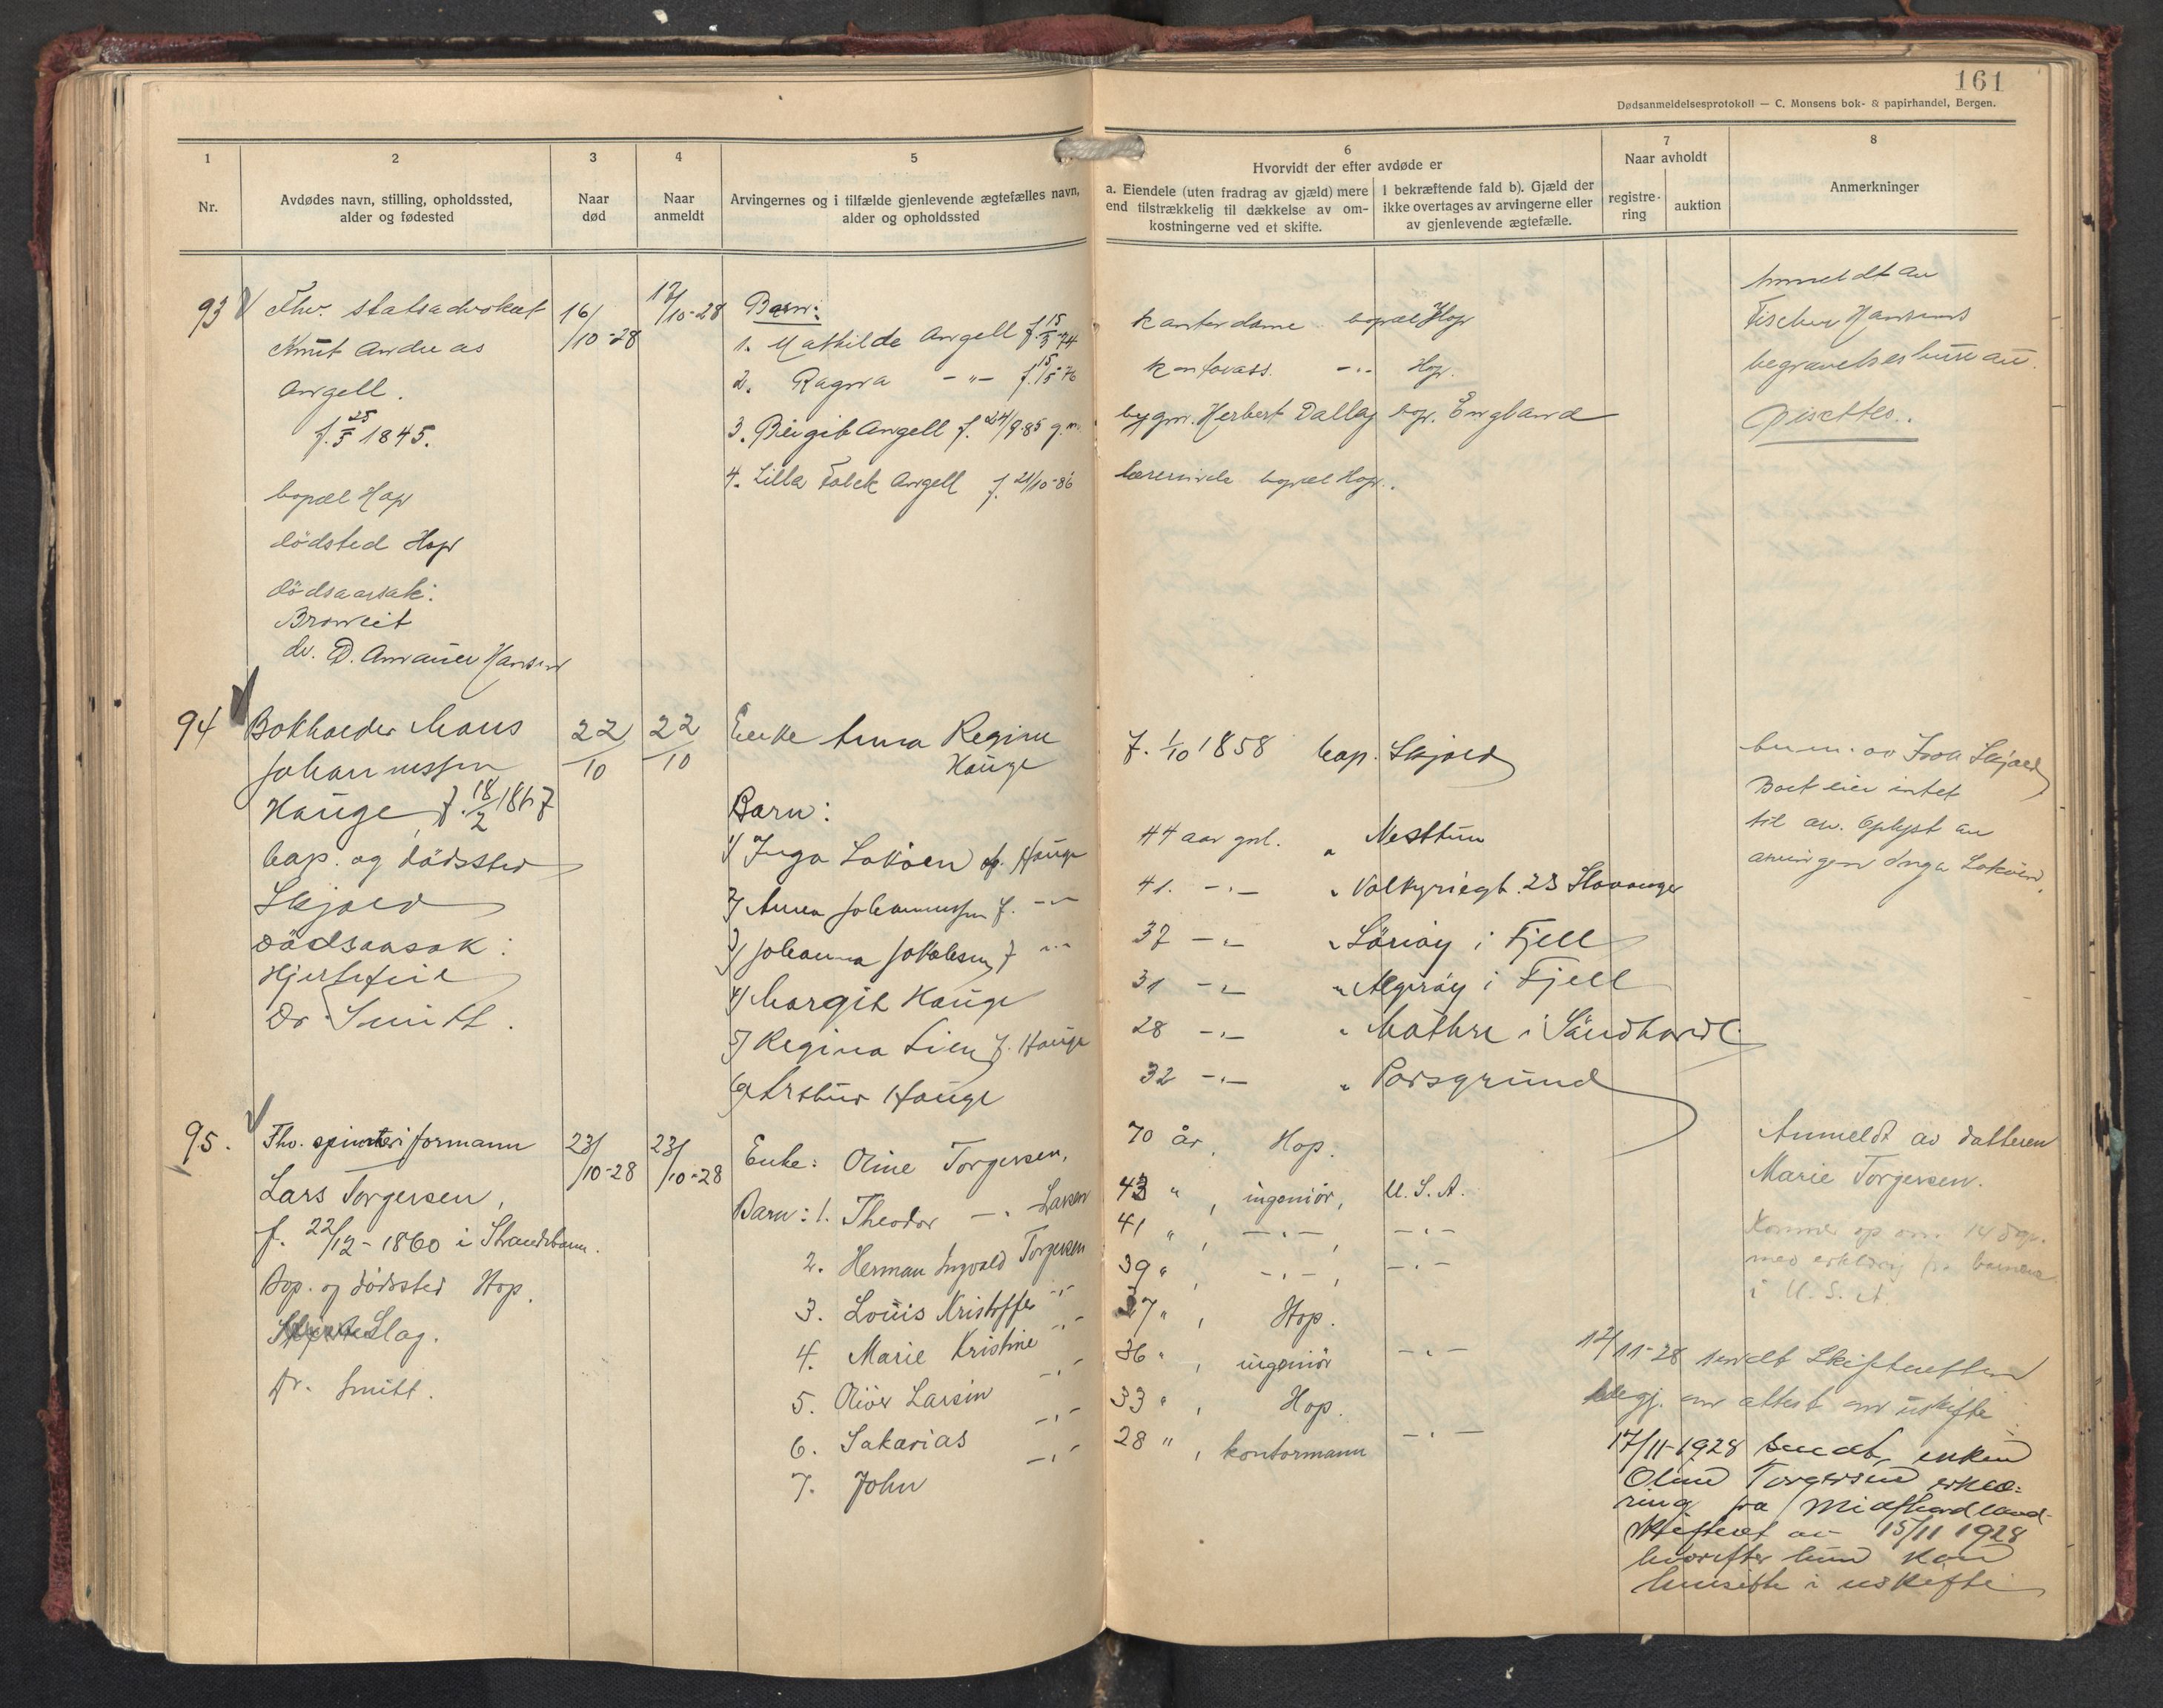 161
Dødsanmeldelsesprotokoll — C. Monsens bok- & papirhandel, Bergen.
1
2
3
4
5
6
7
8
Hvorvidt der efter avdøde er
Naar avholdt
Nr.
Avdødes navn, stilling, opholdssted,
alder og fødested
Naar
død
Naar
anmeldt
Arvingernes og i tilfælde gjenlevende ægtefælles navn,
alder og opholdssted
a. Eiendele (uten fradrag av gjæld) mere
end tilstrækkelig til dækkelse av om-
kostningerne ved et skifte.
I bekræftende fald b). Gjæld der
ikke overtages av arvingerne eller
av gjenlevende ægtefælle.
registre-
ring
auktion
Anmerkninger
93
Fhv. statsadvokat
Knut Andreas
Angell.
f. 25/5 1845.
bopæl Hop
dödsted Hop
dödsaarsak:
dr. D. Hansen
16/10-28
17/10-28
Barn:
1. Mathilde Angell f. 15/3-74
kontordame bopæl Hop
2. Ragna -"- f. 15/5-76
-"- Hop.
3. Birgit Angell f. 24/9-85 g.m.
bygm. Herbert Dallas bop. England
4. Lilla Falck Angell f. 21/10-86
lærerinde bopæl Hop.
Anmeldt av
Fischer Hansens
begravelseshus av
94
Bokholder Mons
Johannessen
Hauge f. 18/2 1867
bop. og dödssted
Skjold
Dödsaarsak:
Hjertefeil
Dr. Smitt.
22/10
22/10
Enke Anna Regine
Hauge
f. 1/10 1858 bop. Skjold
Barn:
1/ Inga Loköen f. Hauge
44 aar gml. " Nesttun
2/ Anna Johannessen f. -"-
41. -"- " Valkyriegt. 23 Stavanger
3/ Johanna Jakobsen f. -"-
37 -"- " i Fjell
4/ Margit Hauge
31 -"- " Algröy i Fjell
5/ Regina Lien f. Hauge
28 -"- " Mathre i Söndhordl.
6/ Arthur Hauge
32 -"- " Porsgrund
Skjold
Boet eier intet
til av. Oplyst av
arvingen Inga Loköen.
95.
Fhv. spinneriformann
Lars Torgersen,
f. 22/12-1860 i Strandebarm.
Bop. og dödssted Hop.
Slag.
Dr. Smitt.
23/10-28
23/10-28
Enke: Oline Torgersen,
70 år, Hop.
Barn: 1. Theodor -"- Larsen
43 " , ingeniör, U.S.A.
2. Herman Ingvald Torgersen
41 " , -"- -"-
3. Louis Kristoffer -"-
39 " , -"- , -"-
4. Marie Kristine -"-
37 " , Hop.
5. Oliver Larsin -"-
36 " , ingeniör -"-
6. Sakarias -"-
33 " , Hop.
7. John -"-
28 " , kontormann -"-
Anmeldt av datteren
Marie Torgersen.
Kommer op om 14 dge.
med erklæring fra barnene
i U.S.A.
12/11-28 sendt Skifteretten
begj. om attest om uskifte
17/11-1928 sendt enken
Oline Torgersen erklæ-
ring fra Midthordland
skifteret av 15/11 1928
hvorefter hun kan
hensitte i uskifte